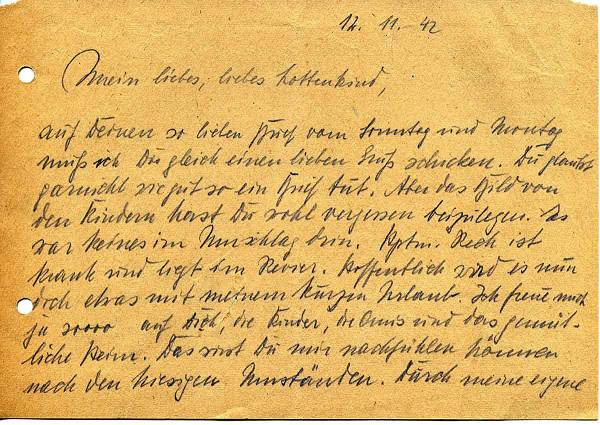 12. 11. 42
Mein liebes, liebes Lottenkind,
auf Deinen so lieben Brief vom Sonntag und Montag
muß ich Dir gleich einen lieben Gruß schicken. Du glaubst
garnicht wie gut so ein Brief tut. Aber das Bild von
den Kindern hast Du wohl vergessen beizulegen. Es
war keines im Umschlag drin. Hptm. Rech ist
krank und liegt im Revier. Hoffentlich wird es nun
doch etwas mit meinem kurzen Urlaub. Ich freue mich
ja soooo auf Dich, die Kinder, die Omis und das gemüt-
liche Heim. Das wirst Du mir nachfühlen können
nach den hiesigen Umständen. Durch meine eigene